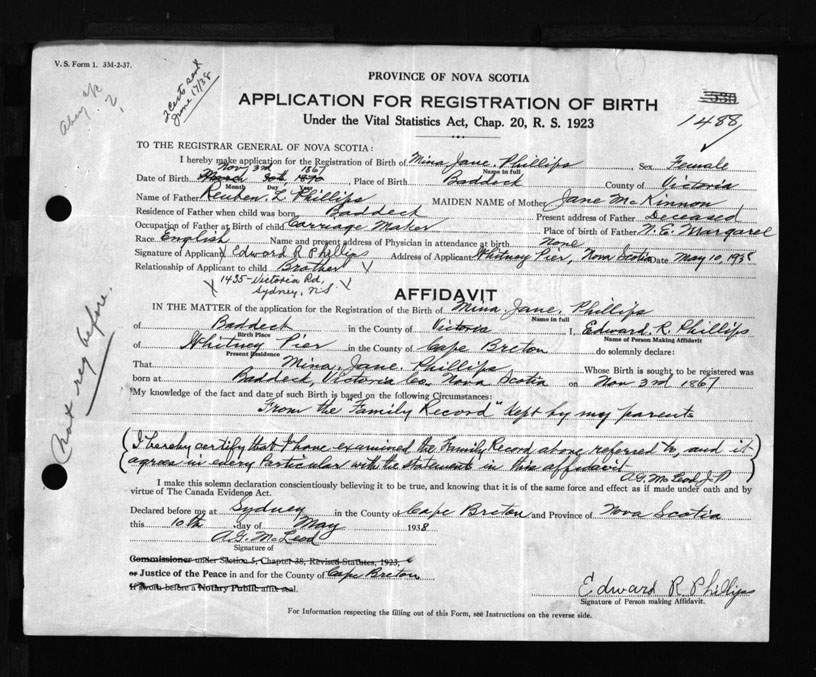 V. S. Form 1. 3M-2-37.
2 Certs sent
June 17/38
PROVINCE OF NOVA SCOTIA
APPLICATION FOR REGISTRATION OF BIRTH
1488
Under the Vital Statistics Act, Chap. 20, R. S. 1923
TO THE REGISTRAR GENERAL OF NOVA SCOTIA:
I hereby make application for the Registration of Birth of Mina Jane Phillips Sex Female
Name in full
Nov 3rd 1867
Date of Birth March 1870, Place of Birth Baddeck County of Victoria
Month Day
Name of Father Reuben L Phillips MAIDEN NAME of Mother Jane McKinnon
Residence of Father when child was born Baddeck Present address of Father Deceased
Occupation of Father at Birth of child Carriage Maker Place of birth of Father N. E. Margaree
Race English Name and present address of Physician in attendance at birth None
Signature of Applicant Edward R Phillips Address of Applicant Whitney Pier, Nova Scotia Date May 10, 1938
Relationship of Applicant to child Brother
1435 - Victoria Rd,
Sydney, NS
AFFIDAVIT
IN THE MATTER of the application for the Registration of the Birth of Mina Jane Phillips
Name in full
of Baddeck in the County of Victoria I, Edward R. Phillips
Birth Place Name of Person Making Affidavit
of Whitney Pier in the County of Cape Breton do solemnly declare:
Present Residence
That Mina Jane Phillips Whose Birth is sought to be registered was
born at Baddeck, Victoria Co. Nova Scotia on Nov 3rd 1867
My knowledge of the fact and date of such Birth is based on the following Circumstances:
From the "Family Record" kept by my parents
(I hereby certify that I have examined the Family Record above referred to, and it)
(agrees in every particular with the statements in this affidavit
A. G. McLeod, J. P)
I make this solemn declaration conscientiously believing it to be true, and knowing that it is of the same force and effect as if made under oath and by
virtue of The Canada Evidence Act.
Declared before me at Sydney in the County of Cape Breton and Province of Nova Scotia
this 10th day of May 1938
A. G. McLeod
Signature of
Commissioner under Section 5, Chapter 38, Revised Statutes, 1923,
or Justice of the Peace in and for the County of Cape Breton
If sworn before a Notary Public affix seal.
Edward R. Phillips
Signature of Person making Affidavit.
For Information respecting the filling out of this Form, see Instructions on the reverse side.
not reg before.